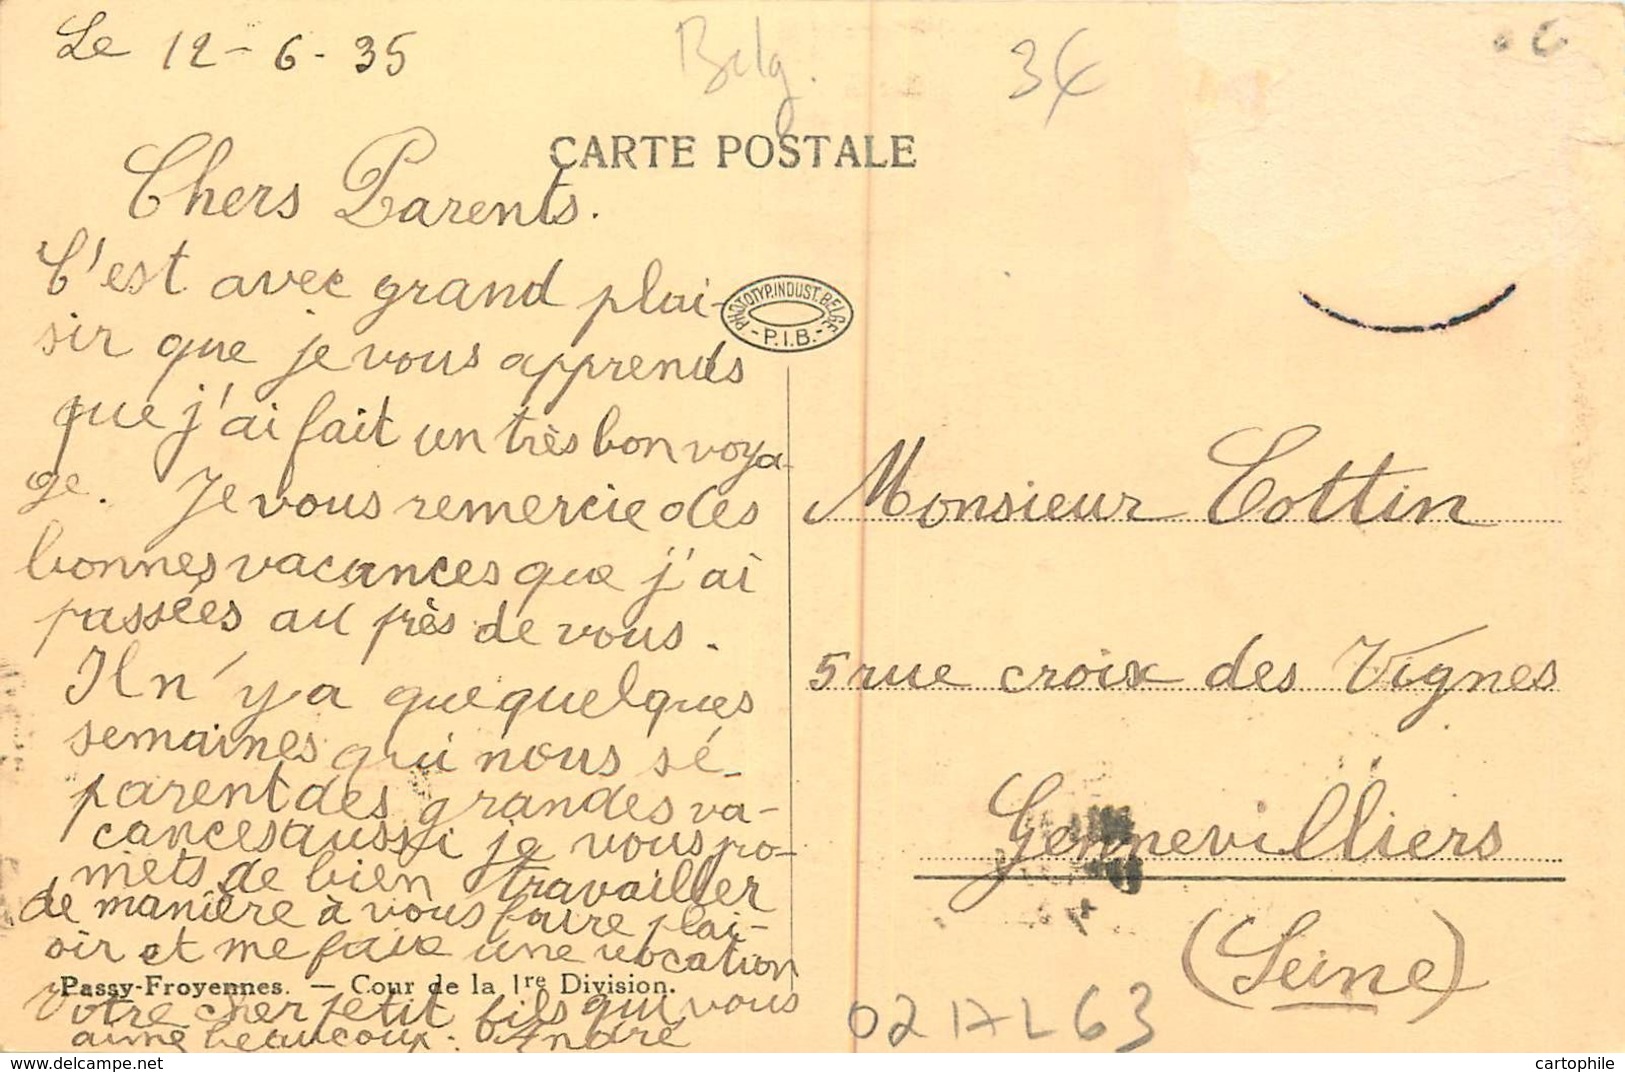 Le 12-6-35
Belg.
34
CARTE POSTALE
Chers Parents.
C'est avec grand plai-
sir que je vous apprends
que j'ai fait un très bon voya-
ge. Je vous remercie des
bonnes vacances que j'ai
passées au près de vous.
Il n'y a que quelques
semaines qui nous sé-
parent des grandes va-
cances aussi je vous pro-
mets de bien travailler
de manière à vous faire plai-
sir et me faire une vocation
Votre cher petit fils qui vous
aime beaucoup. André
PHOTOTYP. INDUST. BELGE
- P.I.B. -
Monsieur Cottin
5 rue croix des Vignes
Gennevilliers
(Seine)
Passy-Froyennes. — Cour de la 1re Division.
02 17 L 63
Delcampe.net
cartophile